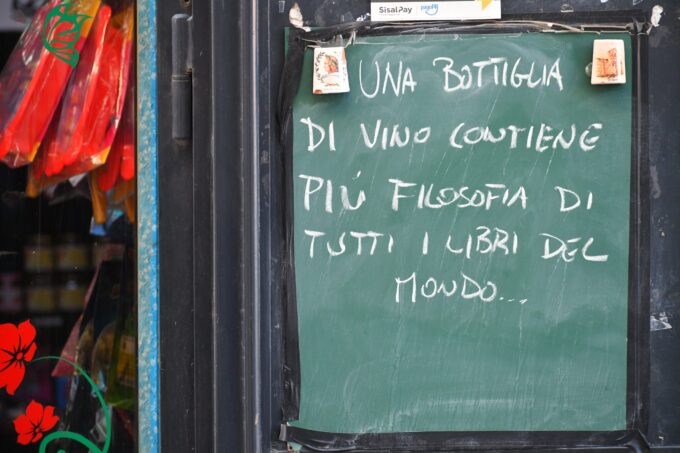 SisalPay pagoPA
UNA BOTTIGLIA
DI VINO CONTIENE
PIÚ FILOSOFIA DI
TUTTI I LIBRI DEL
MONDO...